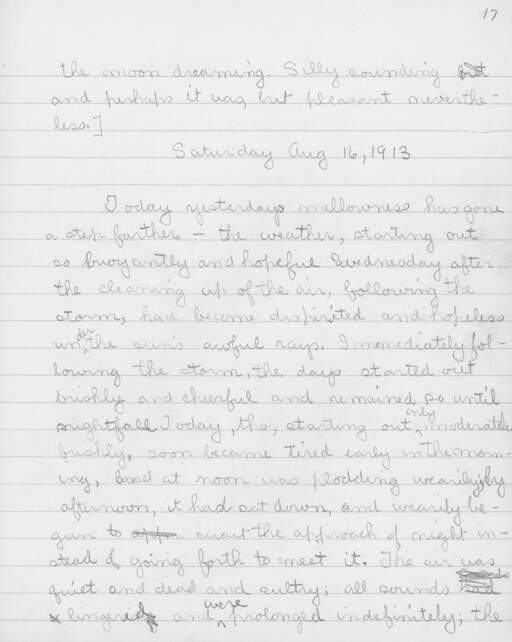 17
the moon dreaming. Silly sounding
and perhaps it was, but pleasant neverthe-
less.]
Saturday Aug 16, 1913
Today yesterdays mellowness has gone
a step farther – the weather, starting out
so buoyantly and hopeful Wednesday after
the cleaning up of the air, following the
storm, had become dispirited and hopeless
under the sun's awful rays. Immediately fol-
lowing the storm, the days started out
briskly and cheerful and remained so until
nightfall Today, tho, starting out only moderately
briskly, soon became tired early in the morn-
ing, and at noon was plodding wearily, by
afternoon, it had sat down, and wearily be-
gun to await the approach of night in-
stead of going forth to meet it. The air was
quiet and dead and sultry; all sounds
lingered and were prolonged indefinitely; the